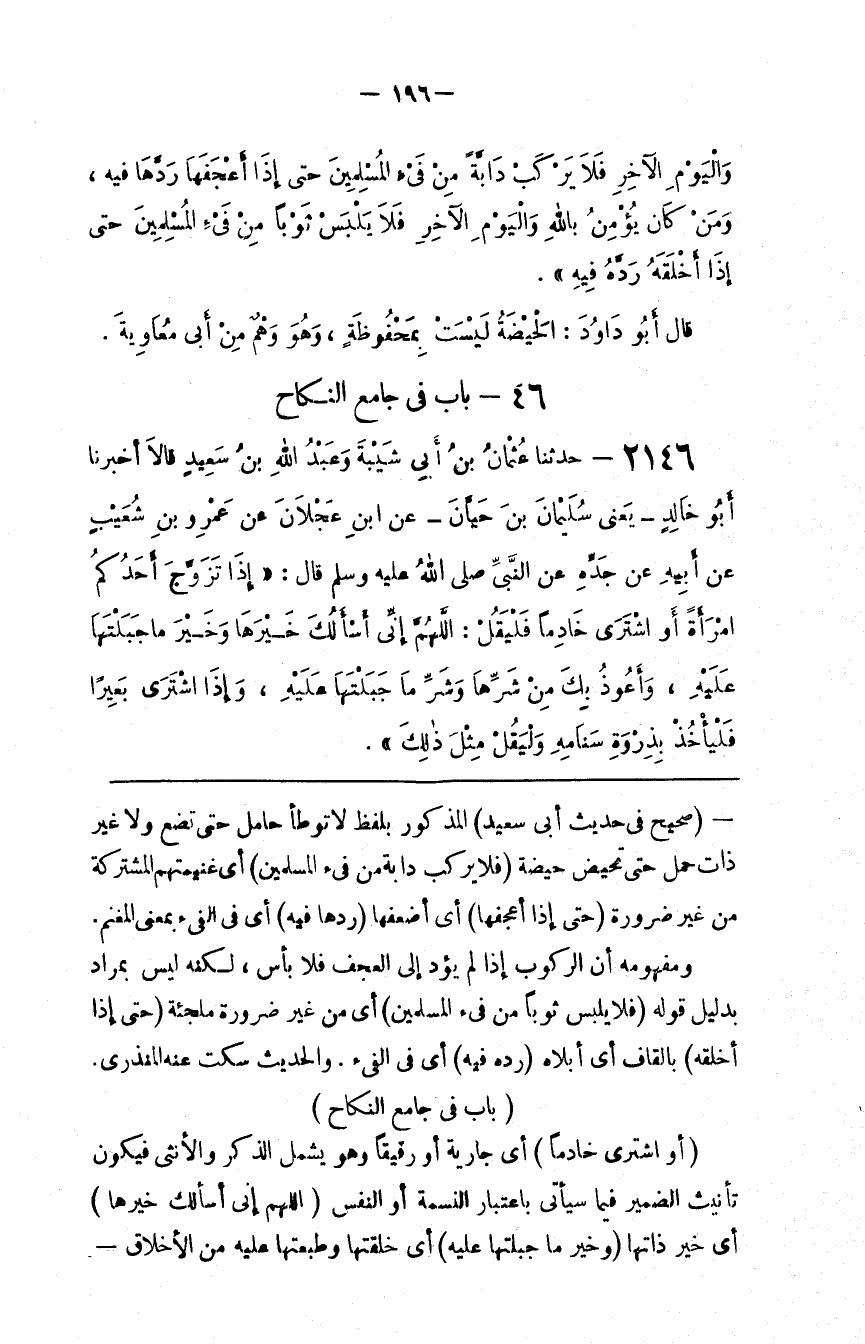 — ١٩٦ —
وَالْيَوْمِ الآخِرِ فَلاَ يَرْكَبْ دَابَّةً مِنْ فَيْءِ المُسْلِمِينَ حتى إِذَا أَعْجَفَهَا رَدَّهَا فيه ،
وَمَنْ كَان يُؤْمِنُ باللهِ وَالْيَوْمِ الآخِرِ فَلاَ يَلْبَسْ ثَوْباً مِنْ فَيْءِ المُسْلِمِينَ حتى
إِذَا أَخْلَقَهُ رَدَّهُ فِيهِ » .
قال أَبُو دَاوُدَ : الْحَيْضَةُ لَيْسَتْ بِمَحْفُوظَةٍ ، وَهُوَ وَهْمٌ مِنْ أَبى مُعَاوِيةَ .
٤٦ — باب فى جامع النـكاح
٢١٤٦ — حدثنا عُثْمانُ بنُ أَبِي شَيْبَةَ وَعَبْدُ اللهِ بنُ سَعِيدٍ قالاَ أخبرنا
أَبُو خَالِدٍ - يَعْنى سُلَيْمانَ بنَ حَيَّانَ - عن ابنِ عَجْلاَنَ عن عَمْرِو بنِ شُعَيْبٍ
عن أَبِيهِ عن جَدِّهِ عن النَّبيِّ صلى اللهُ عليه وسلم قال : « إِذَا تَزَوَّجَ أَحَدُكُم
امْرَأَةً أَو اشْتَرَى خَادِماً فَلْيَقُلْ : اللَّهُمَّ إِنِّى أَسْأَلُكَ خَـيْرَهَا وَخَـيْرَ ماجَبَلْتَهَا
عَلَيْهِ ، وَأَعُوذُ بِكَ مِنْ شَرِّهَا وَشَرِّ مَا جَبَلْتَهَا عَلَيْهِ ، وَإِذَا اشْتَرَى بَعِيرًا
فَلْيأْخُذْ بِذِرْوَةِ سَنَامِهِ وَلْيَقُلْ مِثْلَ ذٰلِكَ » .
— (صحيح فى حديث أبى سعيد) المذكور بلفظ لاتوطأ حامل حتى تضع ولا غير
ذات حمل حتى تحيض حيضة (فلايركب دابة من فىء المسلمين) أى غنيمتهم المشتركة
من غير ضرورة (حتى إذا أعجفها) أى أضعفها (ردها فيه) أى فى الفىء بمعنى المغنم.
ومفهومه أن الركوب إذا لم يؤد إلى العجف فلا بأس ، لـكنه ليس بمراد
بدليل قوله (فلايلبس ثوباً من فىء المسلمين) أى من غير ضرورة ملجئة (حتى إذا
أخلقه) بالقاف أى أبلاه (رده فيه) أى فى الفىء . والحديث سكت عنه المنذرى.
( باب فى جامع النكاح )
(أو اشترى خادماً ) أى جارية أو رقيقاً وهو يشمل الذكر والأنثى فيكون
تأنيث الضمير فيما سيأتى باعتبار النسمة أو النفس ( اللهم إنى أسألك خيرها )
أى خير ذاتها (وخير ما جبلتها عليه) أى خلقتها وطبعتها عليه من الأخلاق —